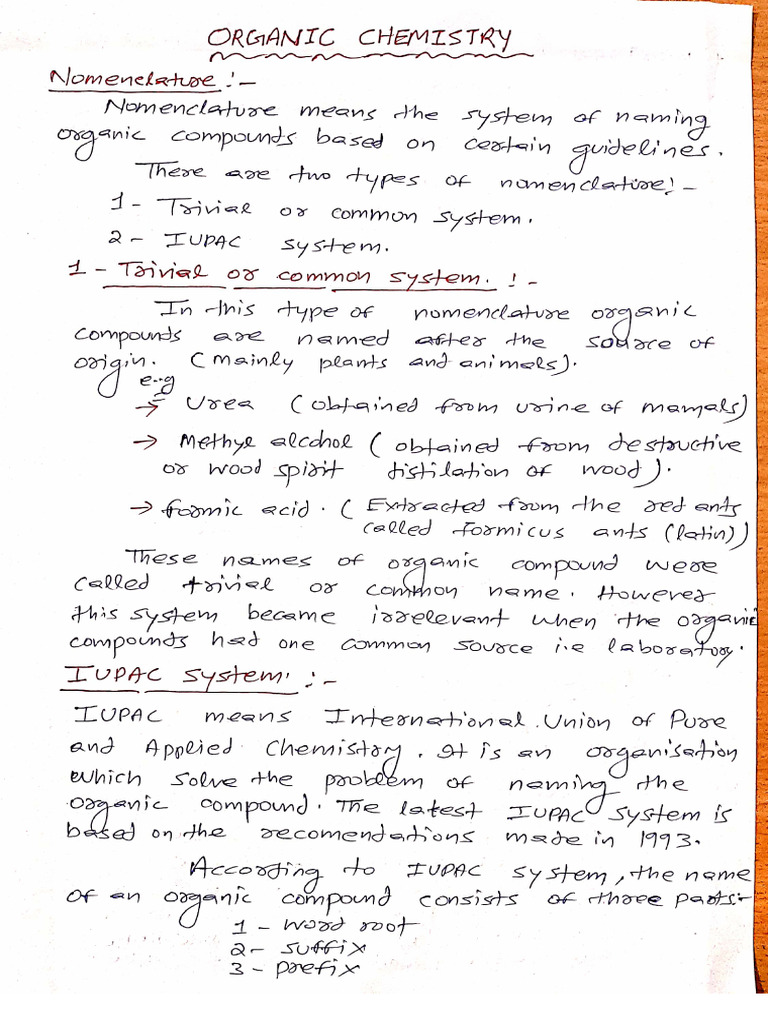 ORGANIC CHEMISTRY
Nomenclature :-
Nomenclature means the system of naming
organic compounds based on certain guidelines.
There are two types of nomenclature:-
1- Trivial or common system.
2- IUPAC system.
1- Trivial or common system. :-
In this type of nomenclature organic
compounds are named after the source of
origin. (mainly plants and animals).
e.g
→ Urea (obtained from urine of mamals)
→ Methyl alcohol (obtained from destructive
or wood spirit distilation of wood).
→ formic acid. (Extracted from the red ants
called formicus ants (latin))
These names of organic compound were
called trivial or common name. However
this system became irrelevant when the organic
compounds had one common source i.e laboratory.
IUPAC System. :-
IUPAC means International Union of Pure
and Applied Chemistry. It is an organisation
which solve the problem of naming the
organic compound. The latest IUPAC system is
based on the recomendations made in 1993.
According to IUPAC system, the name
of an organic compound consists of three parts:-
1- word root
2- suffix
3- prefix